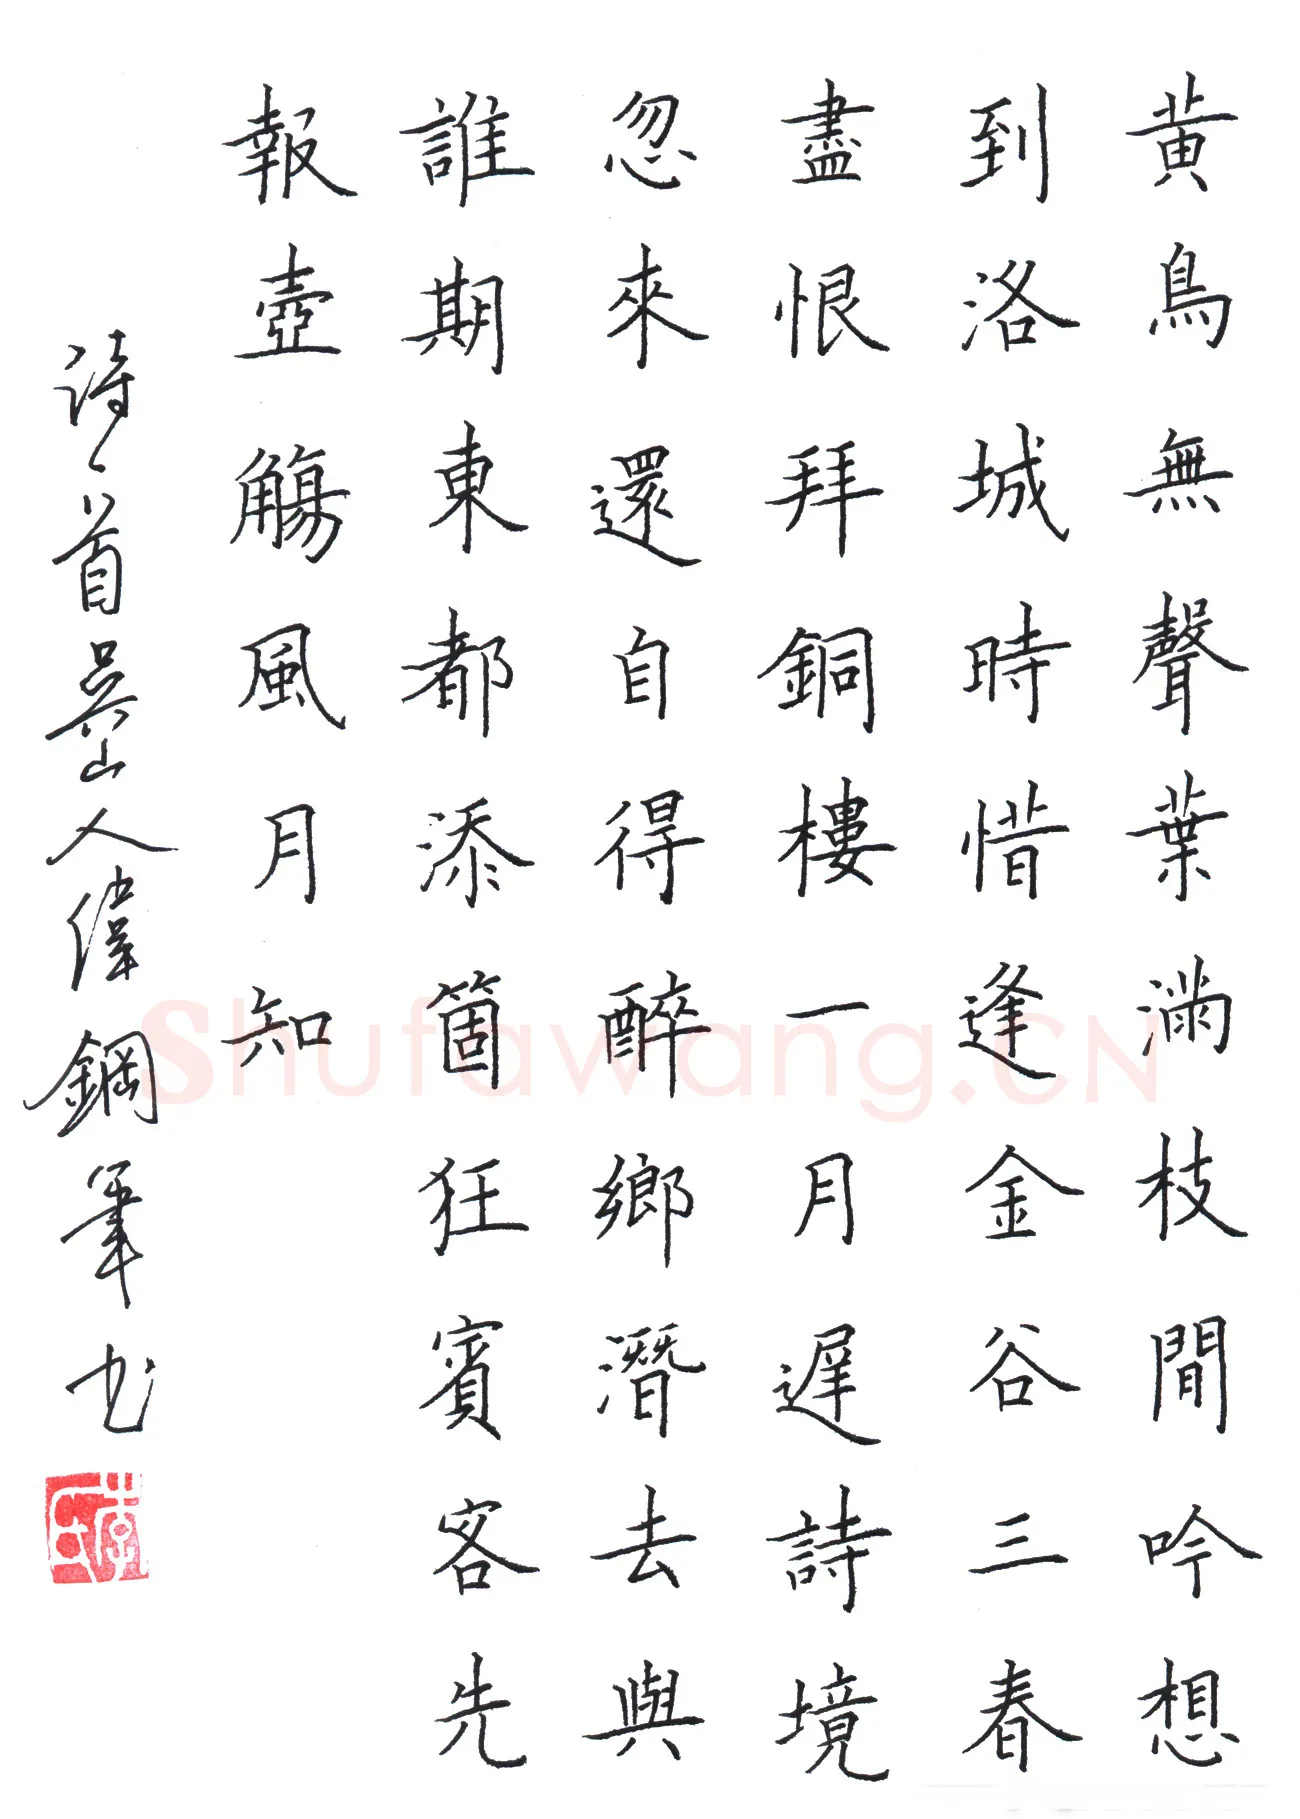 黄鳥無聲葉滿枝間吟想
到洛城時惜逢金谷三春
盡恨拜銅樓一月遲詩境
忽來還自得醉鄉潛去與
誰期東都添箇狂賓客先
報壺觴風月知
詩一首吳山人偉鋼筆书
李氏
Shufawang.CN